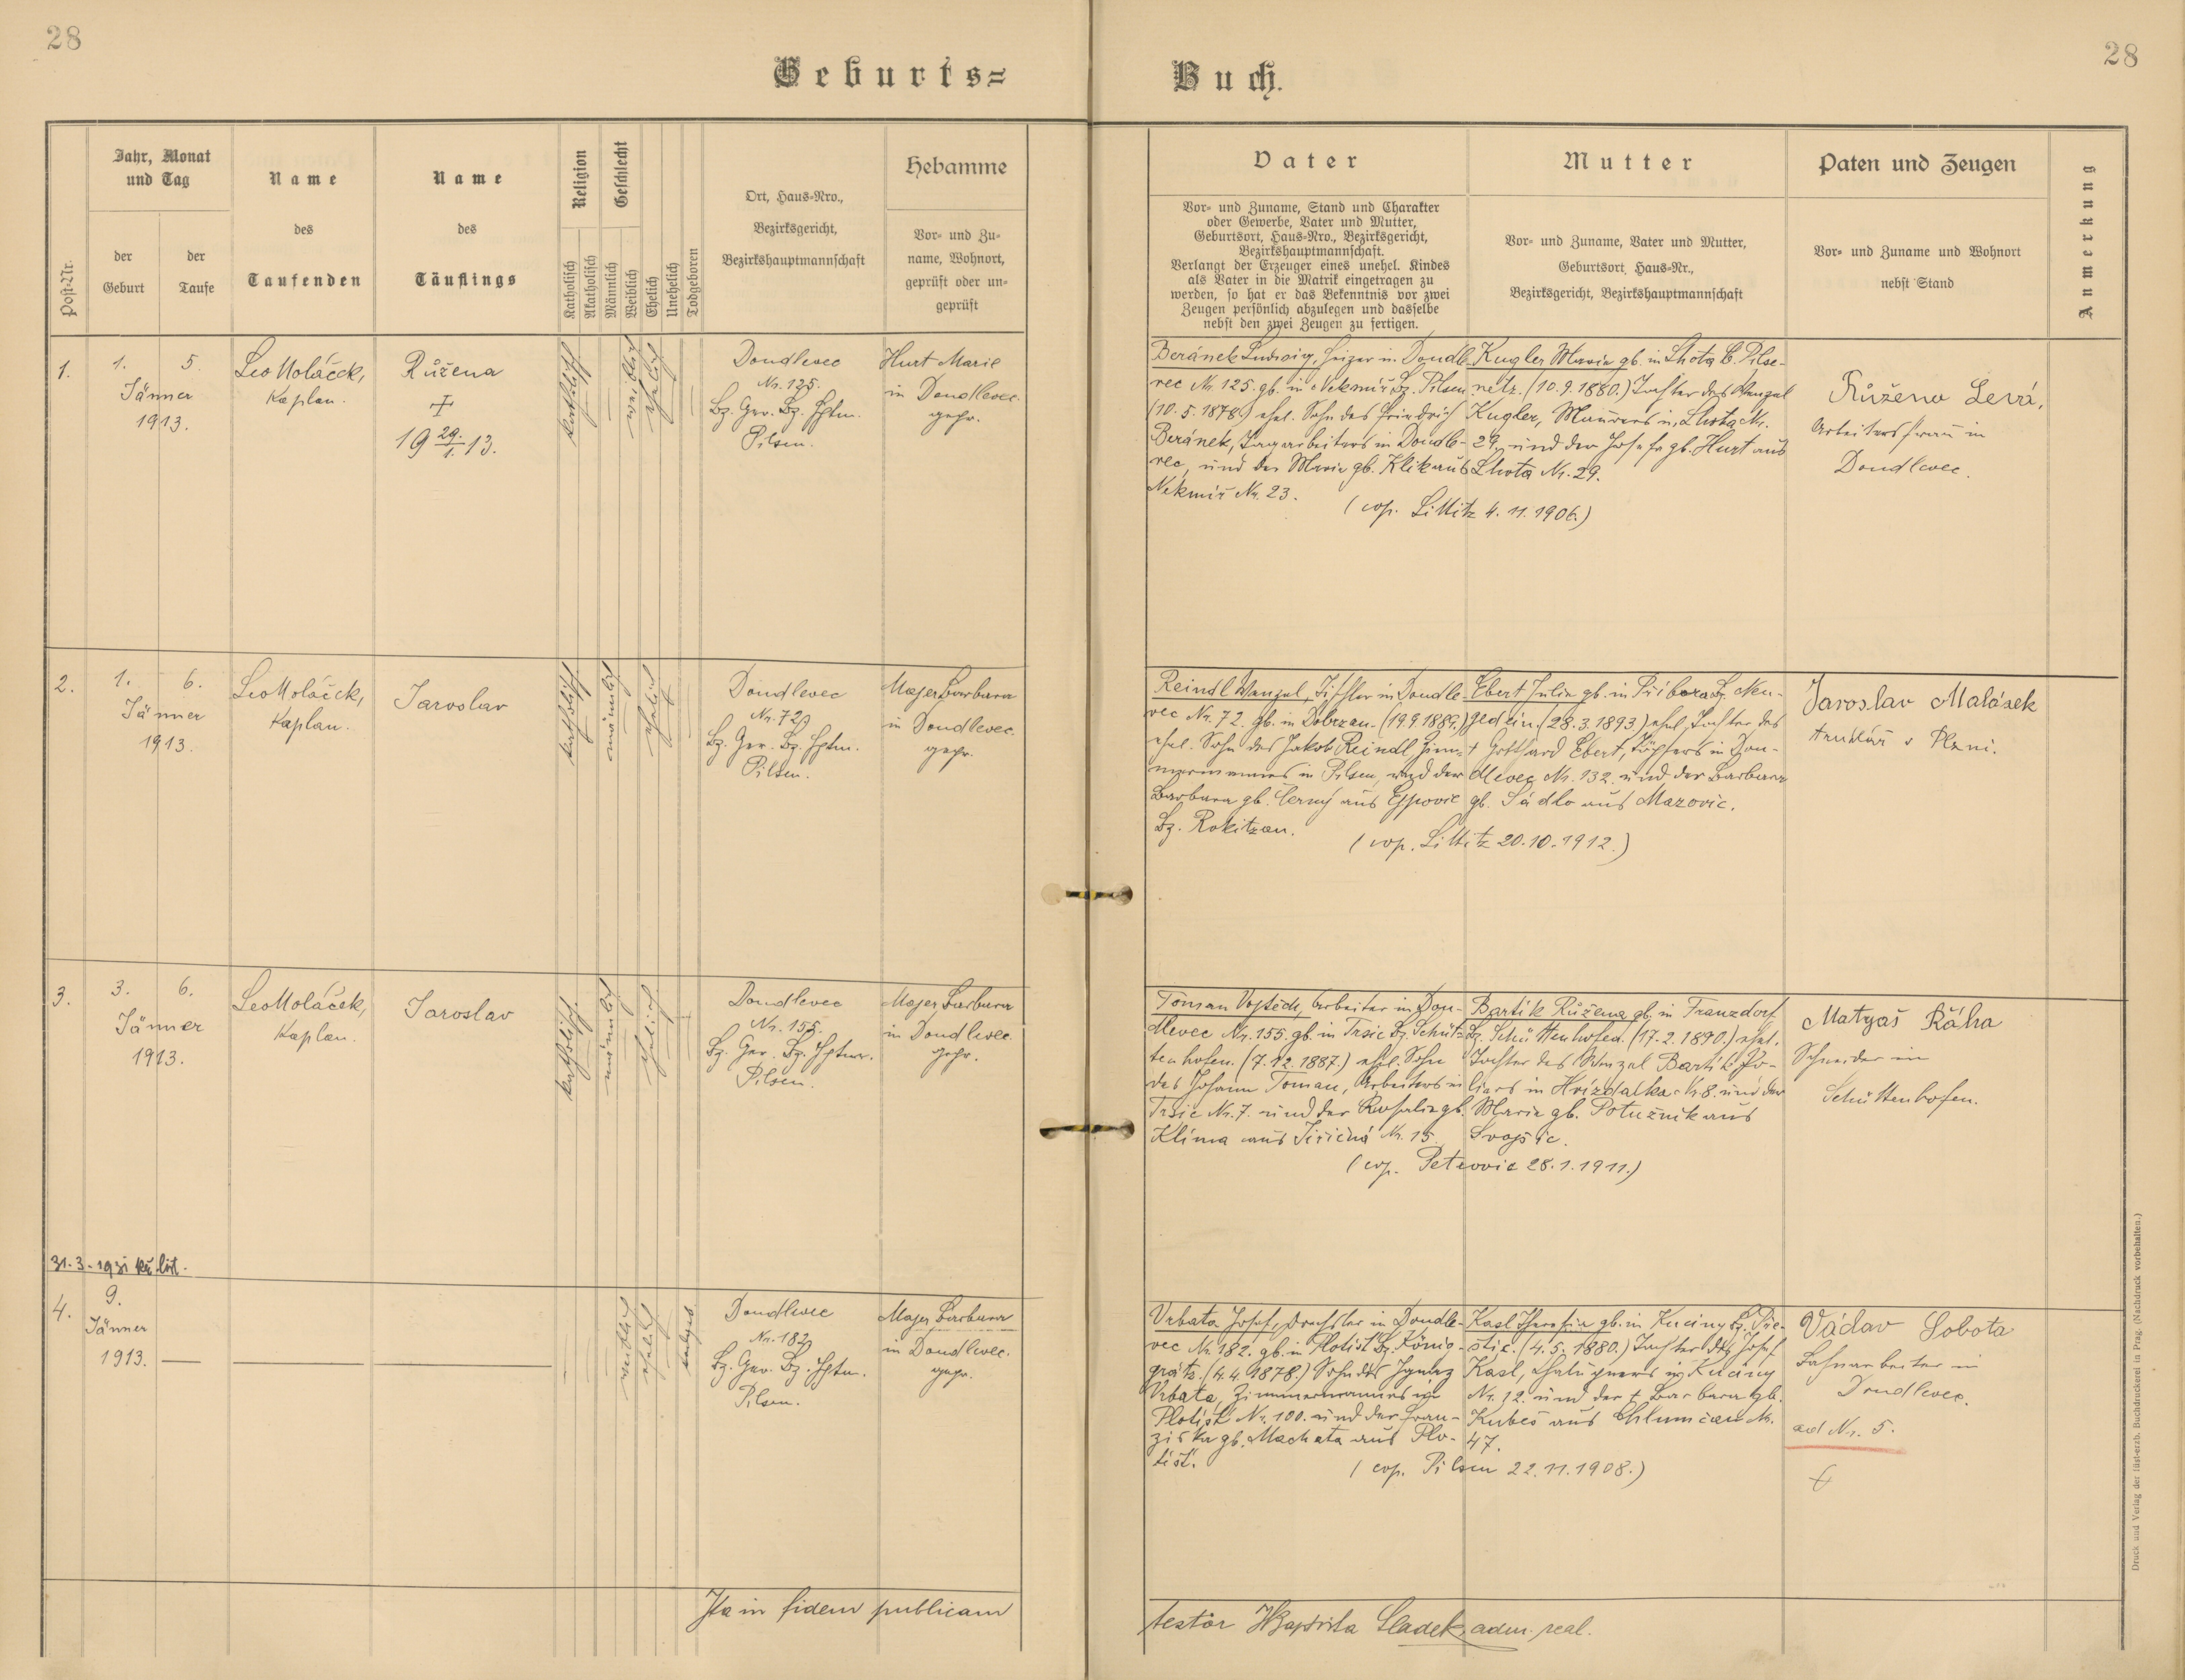 28
28
Geburts=
Buch.
Post-Nr.
Jahr, Monat
und Tag
der
Geburt
der
Taufe
Name
des
Taufenden
Name
des
Täuflings
Religion
Katholisch
Akatholisch
Geschlecht
Männlich
Weiblich
Ehelich
Unehelich
Todgeboren
Ort, Haus-Nro.,
Bezirksgericht,
Bezirkshauptmannschaft
Hebamme
Vor- und Zu-
name, Wohnort,
geprüft oder un-
geprüft
Vater
Vor- und Zuname, Stand und Charakter
oder Gewerbe, Vater und Mutter,
Geburtsort, Haus-Nro., Bezirksgericht,
Bezirkshauptmannschaft.
Verlangt der Erzeuger eines unehel. Kindes
als Vater in die Matrik eingetragen zu
werden, so hat er das Bekenntnis vor zwei
Zeugen persönlich abzulegen und dasselbe
nebst den zwei Zeugen zu fertigen.
Mutter
Vor- und Zuname, Vater und Mutter,
Geburtsort, Haus-Nr.,
Bezirksgericht, Bezirkshauptmannschaft
Paten und Zeugen
Vor- und Zuname und Wohnort
nebst Stand
Anmerkung
1.
1. 5.
Jänner
1913.
Leo Holáček,
Kaplan.
Růžena
+
19 29./1. 13.
katholisch
weiblich
ehelich
Doudlevec
Nr. 125.
Bz. Ger. Bz. Hptm.
Pilsen.
Hurt Marie
in Doudlevec.
gepr.
Beránek Ludwig, Heizer in Doudle-
vec Nr. 125. gb. in Nekmíř Bz. Pilsen
(10.5.1878.) ehel. Sohn des Friedrich
Beránek, Tagarbeiters in Doudle-
vec, und der Marie gb. Klik aus
Nekmíř Nr. 23.
Kugler Marie gb. in Lhota B. Pilse-
netz. (10.9.1880.) Tochter des Wenzel
Kugler, Maurers in Lhota Nr.
29. und der Josefa gb. Hurt aus
Lhota Nr. 29.
(cop. Littitz 4.11.1906.)
Růžena Levá,
Arbeitersfrau in
Doudlevec.
2.
1. 6.
Jänner
1913.
Leo Holáček,
Kaplan.
Jaroslav
katholisch
männlich
ehelich
Doudlevec
Nr. 72
Bz. Ger. Bz. Hptm.
Pilsen.
Majer Barbara
in Doudlevec.
gepr.
Reindl Wenzel, Tischler in Doudle-
vec Nr. 72. gb. in Dobrzan. (19.9.1889.)
ehel. Sohn des Jakob Reindl, Zim-
mermannes in Pilsen, und der
Barbara gb. Černý aus Ejpovic
Bz. Rokitzan.
Ebert Julie gb. in Příbora Bz. Neu-
gedein (28.3.1893.) ehel. Tochter des
+ Gotthard Ebert, Töpfers in Dou-
dlevec Nr. 132. und der Barbara
gb. Sádlo aus Mazovic.
(cop. Littitz 20.10.1912.)
Jaroslav Malásek
truhlář v Plzni.
3.
3. 6.
Jänner
1913.
Leo Holáček,
Kaplan.
Jaroslav
katholisch
männlich
ehelich
Doudlevec
Nr. 155.
Bz. Ger. Bz. Hptm.
Pilsen.
Majer Barbara
in Doudlevec.
gepr.
Toman Vojtěch, Arbeiter in Dou-
dlevec Nr. 155. gb. in Trsic Bz. Schüt-
tenhofen. (7.12.1887.) ehel. Sohn
des Johann Toman, Arbeiters in
Trsic Nr. 7. und der Rosalie gb.
Klíma aus Jiřičná Nr. 15.
Bartík Růžena gb. in Franzdorf
Bz. Schüttenhofen. (17.2.1890.) ehel.
Tochter des Wenzel Bartík, Po-
liers in Hvízdalka Nr. 8. und der
Marie gb. Potužník aus
Svojšic.
(cop. Petrovic 28.1.1911.)
Matyaš Řáha
Schneider in
Schüttenhofen.
31.3.1931
4.
9.
Jänner
1913.
weiblich
ehelich
todgeb.
Doudlevec
Nr. 182
Bz. Ger. Bz. Hptm.
Pilsen.
Majer Barbara
in Doudlevec.
gepr.
Vrbata Josef, Drechsler in Doudle-
vec Nr. 182. gb. in Plotist Bz. König-
grätz. (4.4.1878.) Sohn des Ignaz
Vrbata, Zimmermannes in
Plotist Nr. 100. und der Fran-
ziska gb. Machata aus Plo-
tist.
Kasl Theresia gb. in Kuciny Bz. Pře-
štic. (4.5.1880.) Tochter des Josef
Kasl, Chalupners in Kuciny
Nr. 12. und der + Barbara gb.
Kubeš aus Chlumčan Nr.
47.
(cop. Pilsen 22.11.1908.)
Václav Sobota
Bahnarbeiter in
Doudlevec.
ad Nr. 5.
Ita in fidem publicam
testor J Baptista Sladek, adm. real.
Druck und Verlag der fürst-erzb. Buchdruckerei in Prag. (Nachdruck vorbehalten.)